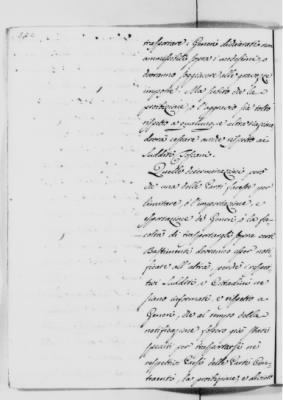 trasportare i Generi dichiarati non
ammissibili sopra i medesimi o
dovranno soggiacere alle gravezze
imposte. Ma subito che la
proibizione o l'aggravio sia tolto
rispetto a qualunque altra Nazione,
dovrà cessare anche rispetto ai
Sudditi Toscani.
Quelle determinazioni poi
che una delle Parti facesse per
limitare o l'importazione, e
esportazione de' Generi o la fa-
coltà di trasportargli sopra certi
Bastimenti dovranno esser noti-
ficate all'altra, onde i rispet-
tivi Sudditi, e Cittadini ne
siano informati, e rispetto a
Generi, che al tempo della
notificazione fossero già
per trasportarsi ne
rispettivi delle Parti Con-
traenti, la proibizione, e divieto